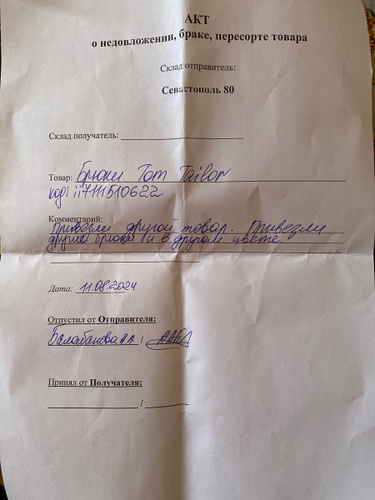 АКТ
о недовложении, браке, пересорте товара
Склад отправитель:
Севастополь 80
Склад получатель:
Товар: Брюки Tom Tailor
код ii7111510622
Комментарий:
Привезли другой товар. Привезли
другие брюки и в другом цвете
Дата: 11.08.2024
Отпустил от Отправителя:
/
Принял от Получателя:
/